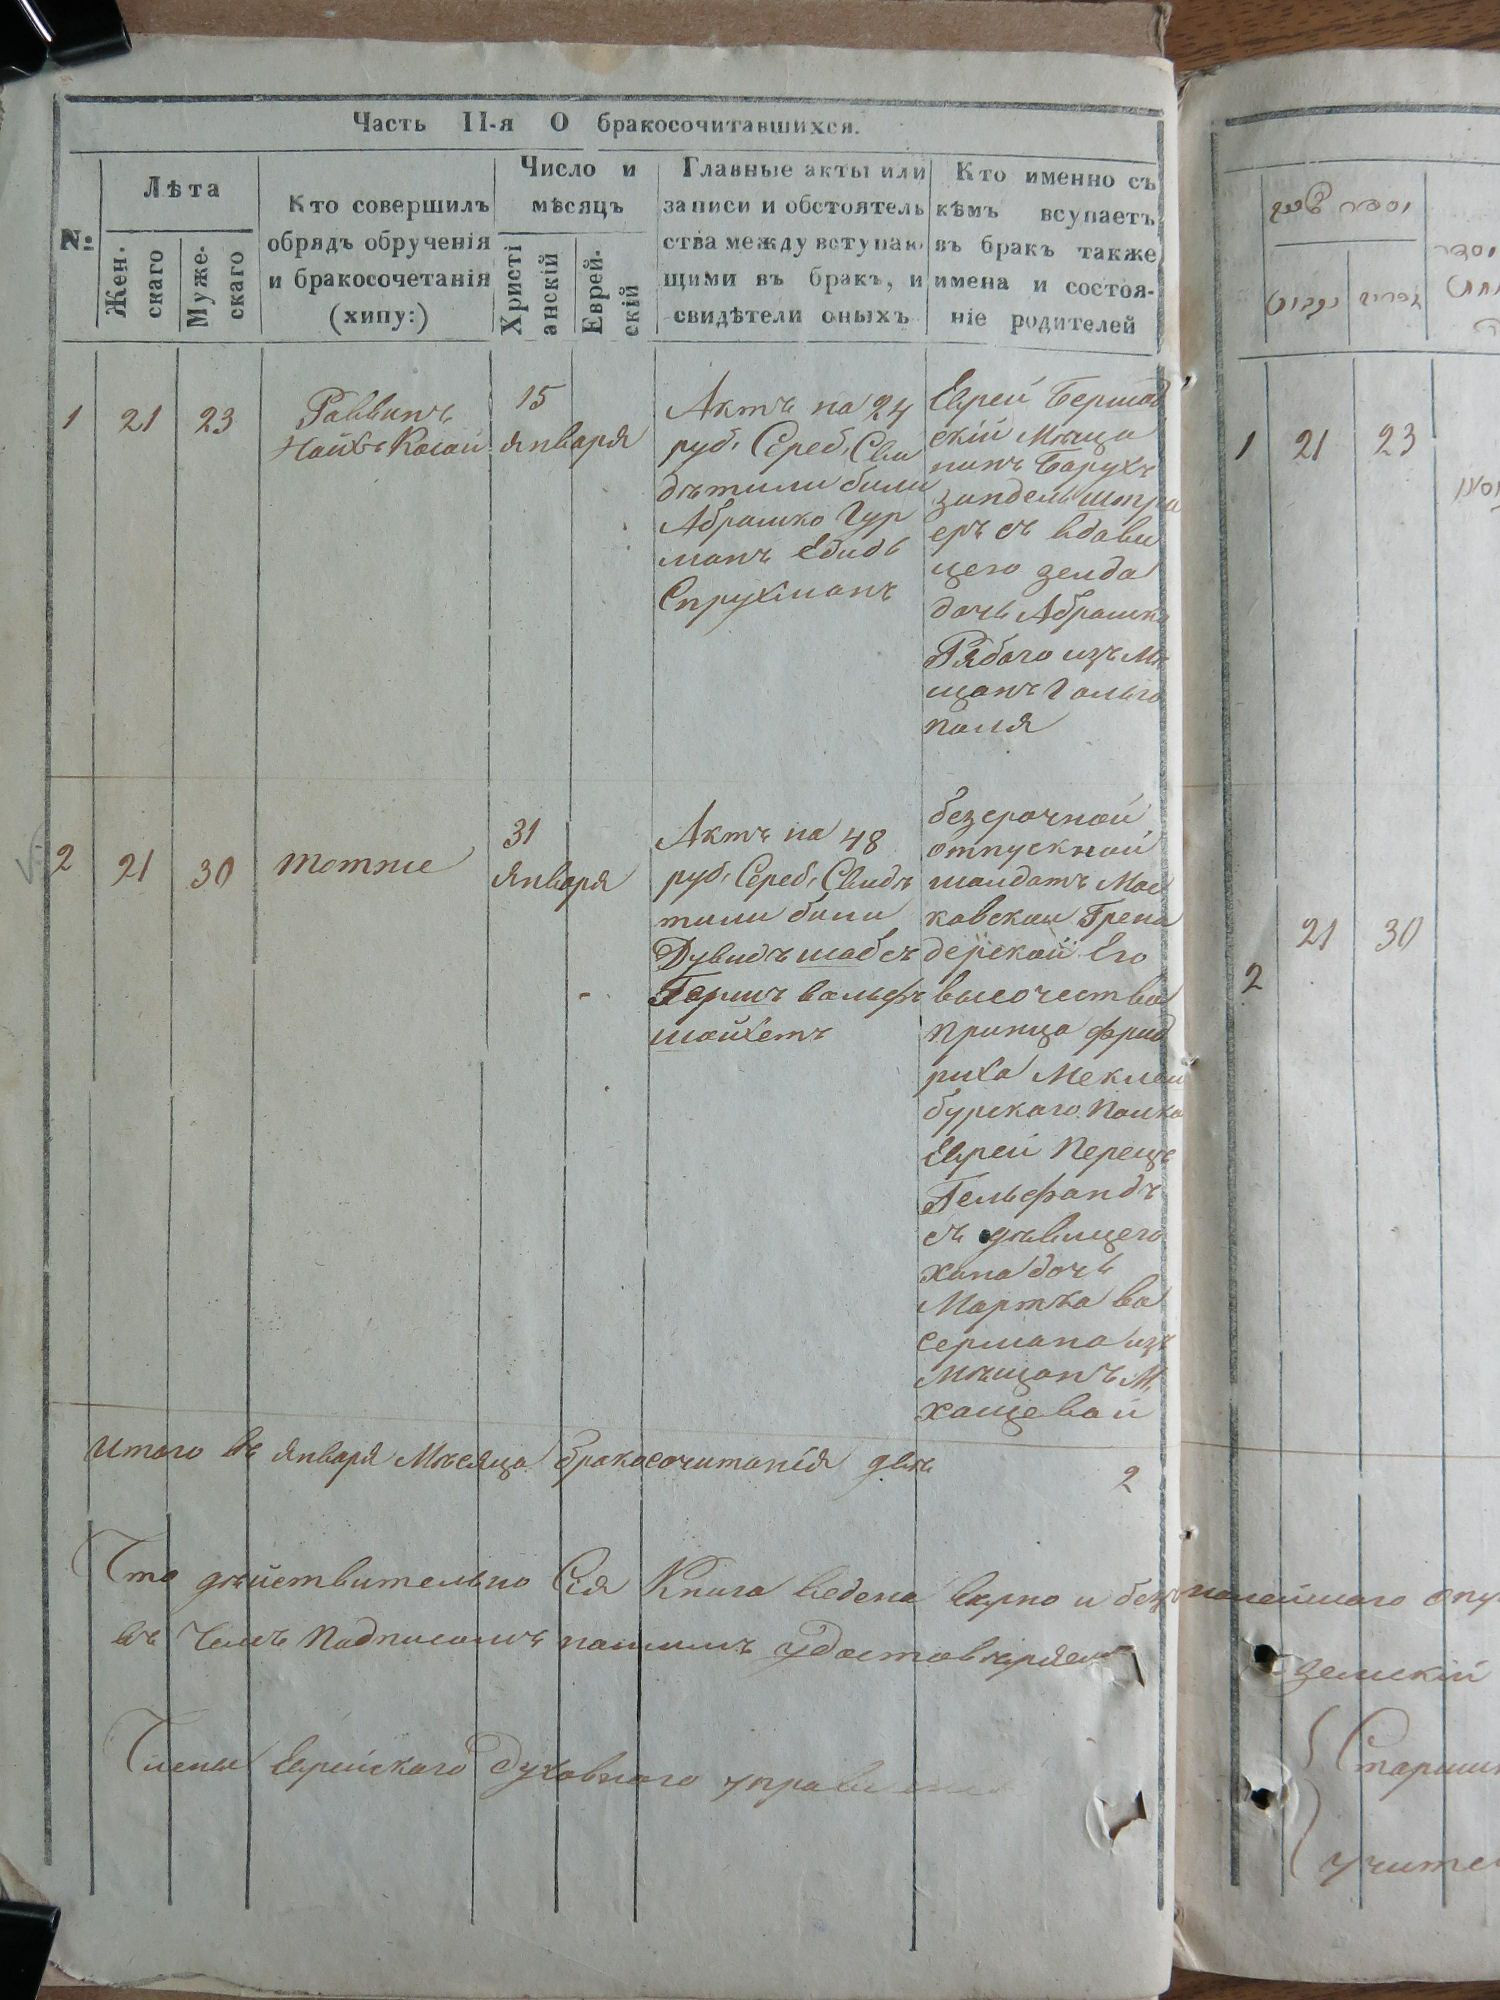 Часть II-я О бракосочитавшихся.
№
Лѣта
Жен-
скаго
Муже-
скаго
Кто совершилъ
обрядъ обрученія
и бракосочетанія
(хипу:)
Число и
мѣсяцъ
Христі
анскій
Еврей-
скій
Главные акты или
записи и обстоятель
ства между вступаю
щими въ бракъ, и
свидѣтели оныхъ
Кто именно съ
кѣмъ всупаетъ
въ бракъ также
имена и состоя-
ніе родителей
1
21
23
Раввинъ
15
января
Актъ на 24
руб. Сереб. Сви
дѣтили били
Абрашко Гур
манъ
Спрухманъ
Еврей Бершад
скій Мѣща
нинъ Барухъ
зандель Штра
еръ съ вдави
цею зелда
дочь Абрашка
Рябого изъ Мѣ
щанъ Гольго
поля
2
21
30
тотже
31
января
Актъ на 48
руб. Сереб. Свидѣ
тили били
Дувидъ шабсъ
Гершъ вольфъ
шойхетъ
безсрочной
отпускной
шолдатъ Мос
ковскои Грена
дерской Его
высочества
принца фрид
риха Меклен
бурскаго Полка
Еврей Перецъ
Гельфандъ
съ дѣвицею
хана дочь
Мортка ва
сермана изъ
Мѣщанъ М.
хащевой
Итого въ января Мѣсяца бракосочитанія двѣ
2
Что дѣйствительно Сія Книга ведена вѣрно и безъ малейшаго опу
въ Чемъ Подписомъ нашимъ удостовѣряем
Члены Еврейскаго Духовнаго управления
1
21
23
2
21
30
земскій
Старши
учител